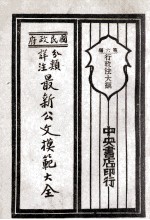 行政法大綱
中央書店印行
國民政府
分類
詳注
最新公文模範大全